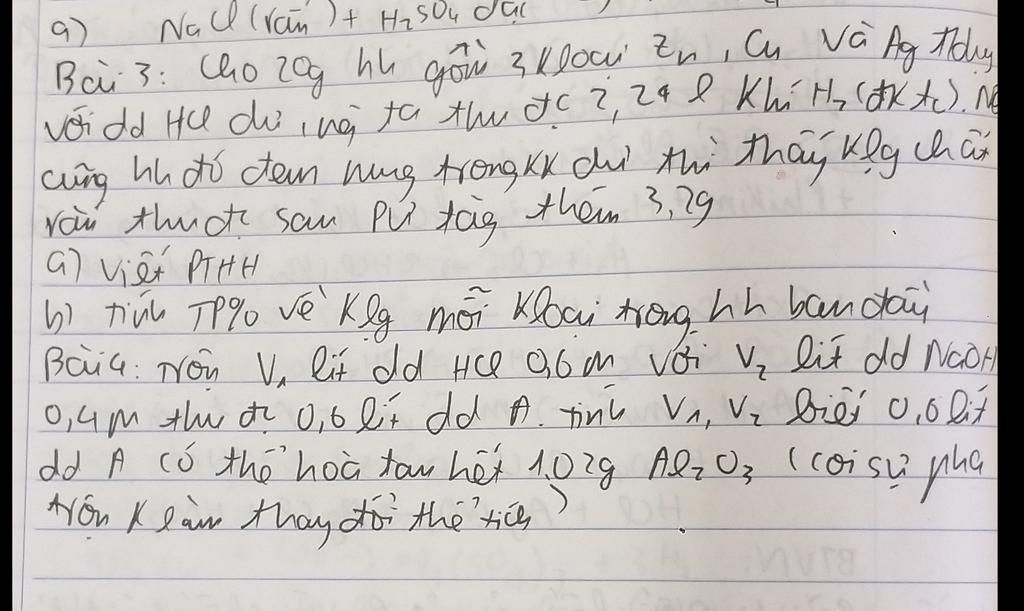 a) NaCl (rắn) + H₂SO₄ đặc
Bài 3: Cho 20g hh gồm 3 kloại Zn, Cu và Ag t/dụng
với dd HCl dư, ng ta thu đc 2,24 l khí H₂ (đktc). Nế
cũng hh đó đem nung trong KK dư thì thấy klg chất
rắn thu đc sau PƯ tăng thêm 3,2g
a) Viết PTHH
b) tính TP% về klg mỗi kloại trong hh ban đầu
Bài 4: trộn V₁ lít dd HCl 0,6M với V₂ lít dd NaOH
0,4M thu đc 0,6 lít dd A. tính V₁, V₂ biết 0,6 lít
dd A có thể hoà tan hết 1,02g Al₂O₃ (coi sự pha
trộn K làm thay đổi thể tích)